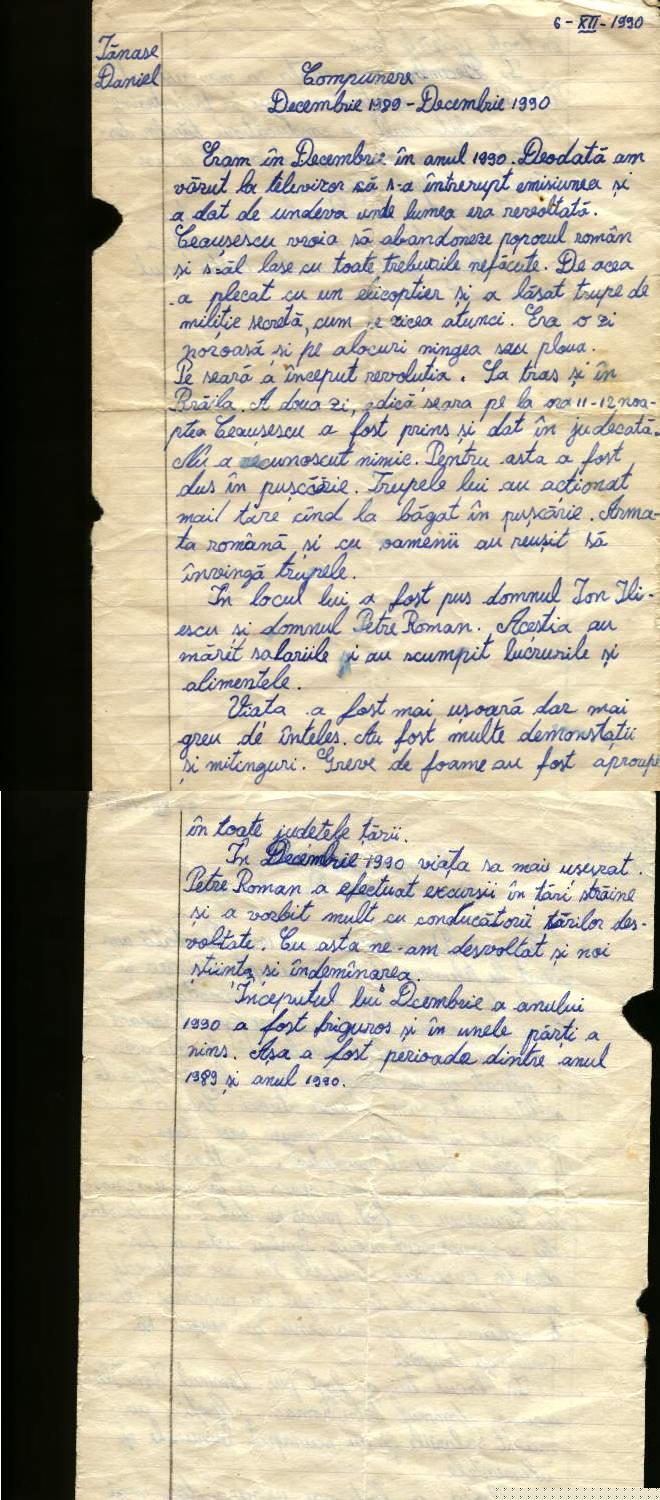 6-XII-1990
Tănase
Daniel
Compunere
Decembrie 1989-Decembrie 1990
Eram în Decembrie în anul 1990. Deodată am
văzut la televizor că s-a întrerupt emisiunea și
a dat de undeva unde lumea era revoltată.
Ceaușescu vroia să abandoneze poporul român
și s-ăl lase cu toate treburile nefăcute. De acea
a plecat cu un elicoptier și a lăsat trupe de
miliție secretă, cum se zicea atunci. Era o zi
noroasă și pe alocuri ningea sau ploua.
Pe seară a început revoluția. Sa tras și în
Brăila. A doua zi, adică seara pe la ora 11-12 noa-
ptea Ceaușescu a fost prins și dat în judecată.
Nu a recunoscut nimic. Pentru asta a fost
dus în pușcărie. Trupele lui au acționat
mai tare cînd la băgat în pușcărie. Arma-
ta română și cu oamenii au reușit să
învingă trupele.
În locul lui a fost pus domnul Ion Ili-
escu și domnul Petre Roman. Aceștia au
mărit salariile și au scumpit lucrurile și
alimentele.
Viața a fost mai ușoară dar mai
greu de înțeles. Au fost multe demonstații
și mitinguri. Greve de foame au fost aproupe
în toate județele țării.
În Decembrie 1990 viața sa mai ușurat.
Petre Roman a efectuat excursii în țări străine
și a vorbit mult cu conducătorii țărilor des-
voltate. Cu asta ne-am desvoltat și noi
știința și îndemînarea.
Începutul lui Dcembrie a anului
1990 a fost friguros și în unele părți a
nins. Așa a fost perioada dintre anul
1989 și anul 1990.